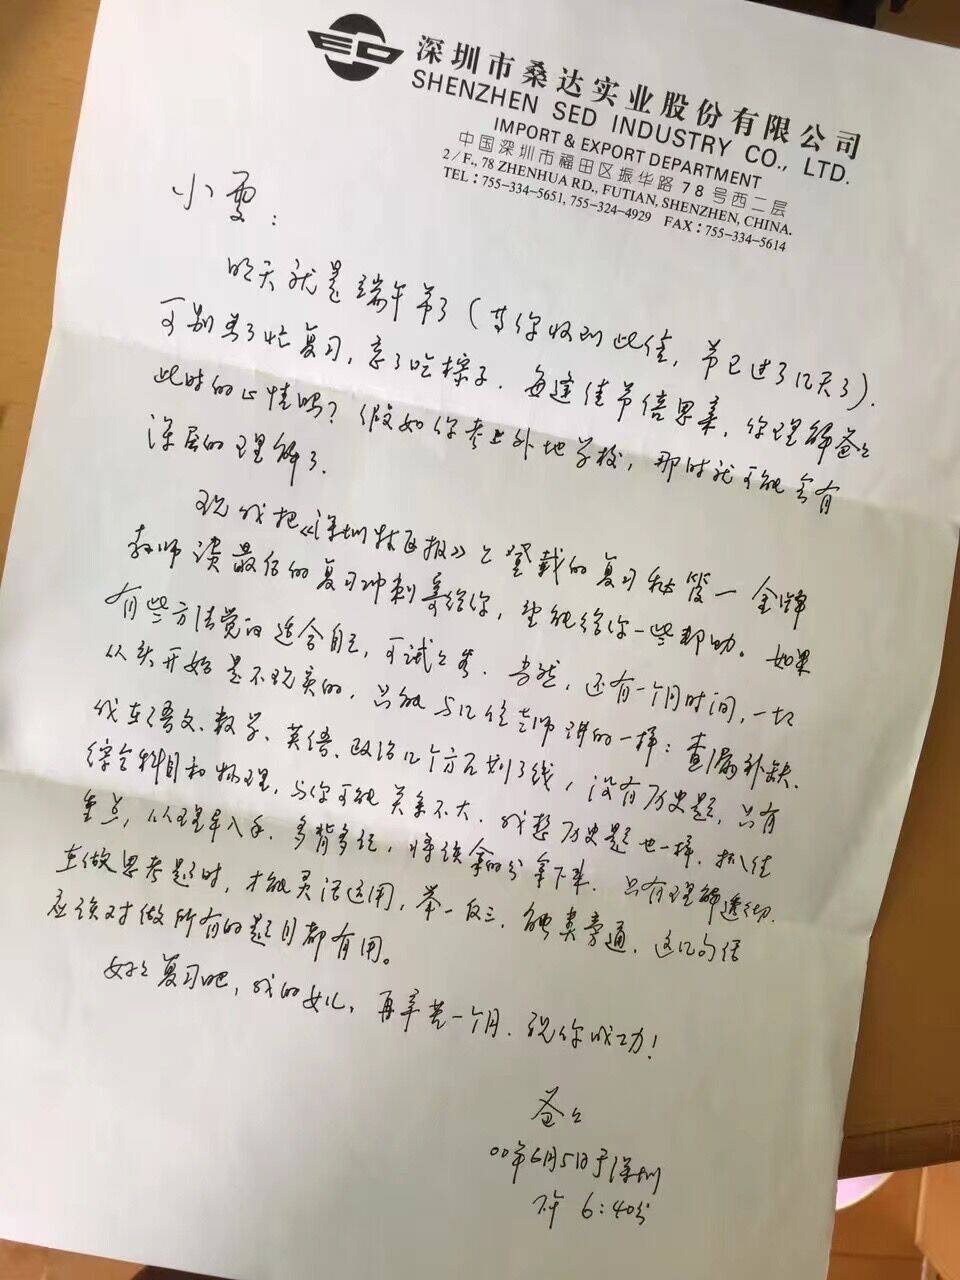 深圳市桑达实业股份有限公司
SHENZHEN SED INDUSTRY CO., LTD.
IMPORT & EXPORT DEPARTMENT
中国深圳市福田区振华路78号西二层
2/F., 78 ZHENHUA RD., FUTIAN, SHENZHEN, CHINA.
TEL: 755-334-5651, 755-324-4929 FAX: 755-334-5614
小雯：
明天就是端午节了（等你收到此信，节已过了几天了）.
可别为了忙复习，忘了吃棕子. 每逢佳节倍思亲，你理解爸爸
此时的心情吗？假如你考上外地学校，那时就可能会有
深层的理解了.
现我把《深圳特区报》上登载的复习秘笈一金牌
教师谈最后的复习冲刺寄给你，望能给你一些帮助。如果
有些方法觉的适合自己，可试试看. 当然，还有一个月时间，一切
从头开始是不现实的，只能与几位老师讲的一样：查漏补缺.
我在语文、数学、英语、政治几个方面划了线，没有历史题，只有
综合科目和物理，与你可能关系不大. 我想历史题也一样. 抓住
重点，从理串入手. 多背多记，将该拿的分拿下来. 只有理解透彻.
在做思考题时，才能灵活运用，举一反三. 触类旁通. 这几句话
应该对做所有的题目都有用。
好好复习吧，我的女儿，再辛苦一个月. 祝你成功！
爸爸
00年6月5日于深圳
下午 6:40分